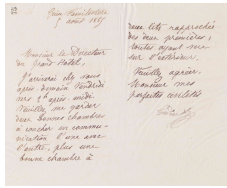 9 août 1887
Monsieur le Directeur
du Grand Hôtel.
J'arrivai chez vous
après-demain Vendredi
vers 2 h après-midi
Veuillez me garder
deux bonnes chambres
à coucher en commu-
nication l'une avec
l'autre, plus une
bonne chambre à
deux lits rapprochée
des deux premières;
toutes ayant vue
sur l'extérieur.
Veuillez agréer,
Monsieur mes
parfaites civilités